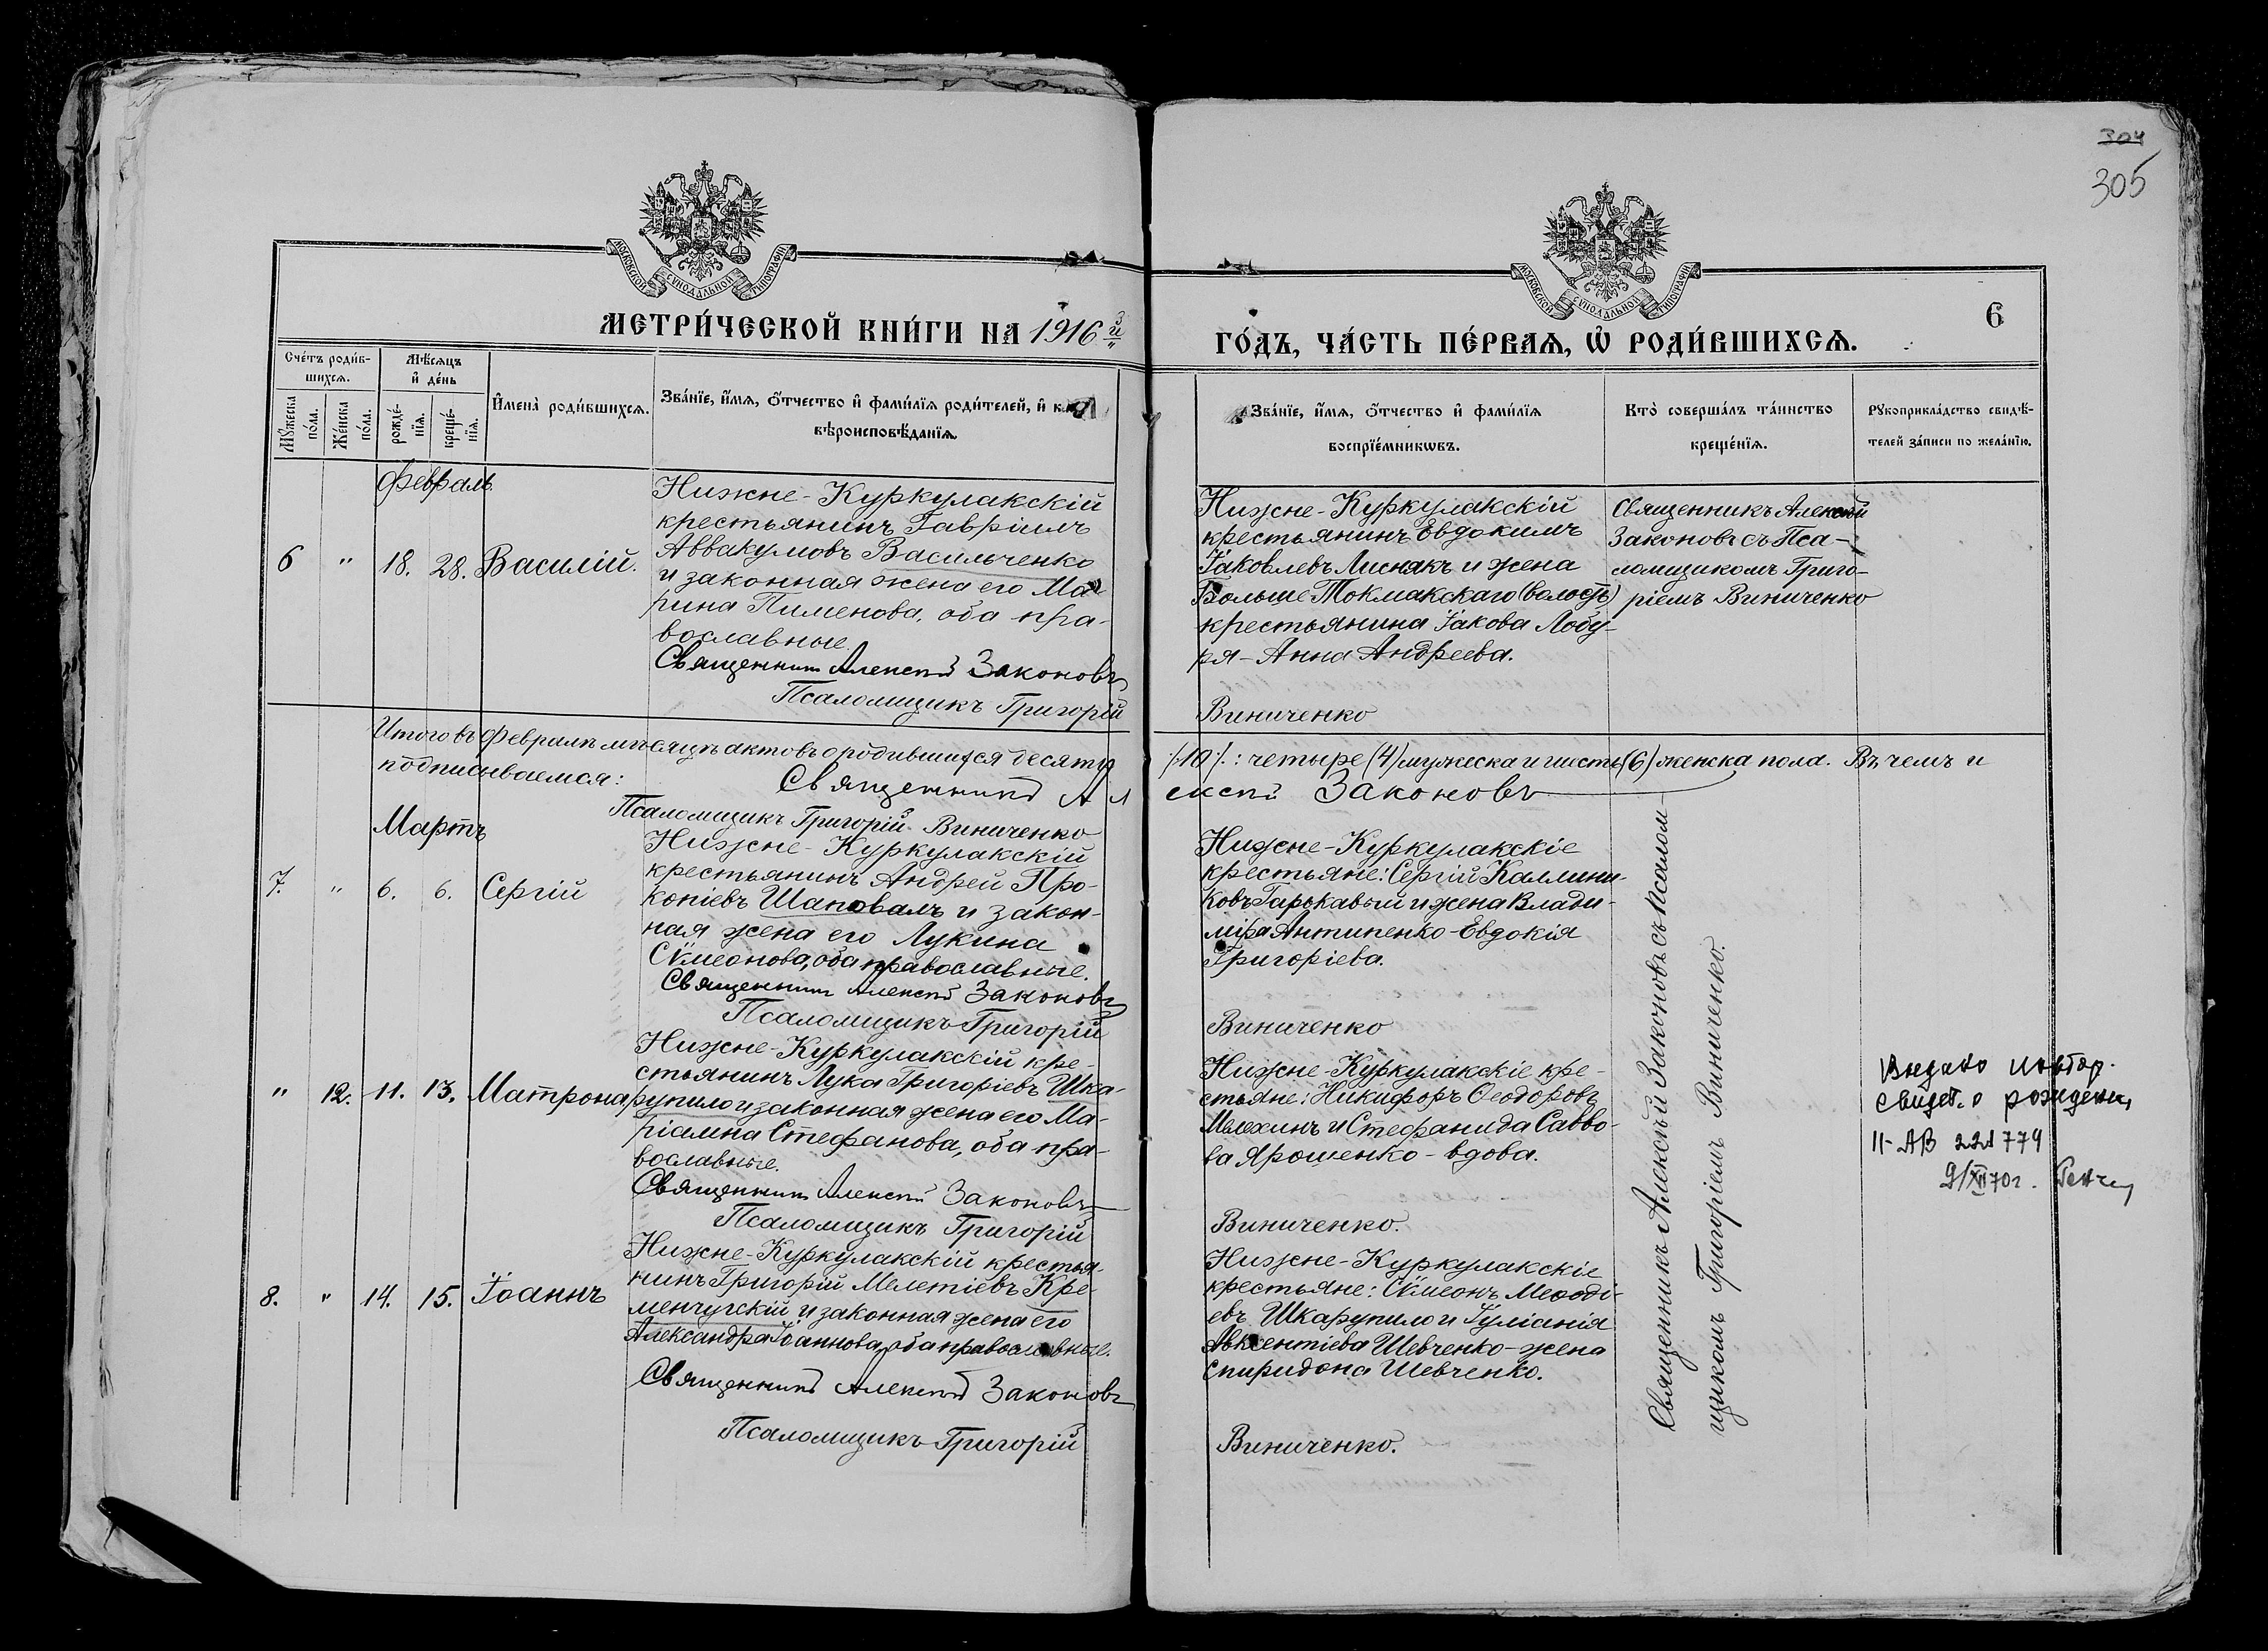 304
305
МОСКОВСКОЙ СУНОДАЛЬНОЙ ТИПОГРАФІИ
МОСКОВСКОЙ СУНОДАЛЬНОЙ ТИПОГРАФІИ
МЕТРИ́ЧЕСКОЙ КНИ́ГИ НА 1916й
ГО́ДЪ, ЧА́СТЬ ПЕ́РВАѦ, Ѡ҆ РОДИ́ВШИХСѦ.
6
Сче́тъ роди́в-
шихсѧ.
Мѹ́жеска
по́ла.
Же́нска
по́ла.
Мѣ́сѧцъ
и҆ де́нь
рожде́-
нїѧ.
креще́-
нїѧ.
И҆мена̀ роди́вшихсѧ.
Зва́нїе, и҆́мѧ, ѻ҆́тчество и҆ фами́лїѧ роди́телей, и҆
вѣроисповѣ́данїѧ.
Зва́нїе, и҆́мѧ, ѻ҆́тчество и҆ фами́лїѧ
воспрїе́мникѡвъ.
Кто̀ соверша́лъ та́инство
креще́нїѧ.
Рѹкоприкла́дство свидѣ́-
телей за́писи по жела́нїю.
Февраль
6 " 18. 28. Василій.
Нижне-Куркулакскій
крестьянинъ Гавріилъ
Аввакумовъ Васильченко
и законная жена его Ма-
рина Пименова, оба пра-
вославные.
Священникъ Алексій Законовъ
Псаломщикъ Григорій
Нижне-Куркулакскій
крестьянинъ Евдокимъ
Іаковлевъ Лиснякъ и жена
Больше Токмакскаго (волость)
крестьянина Іакова Лобу-
ря-Анна Андреева.
Виниченко
Священникъ Алексій
Законовъ съ Пса-
ломщикомъ Григо-
ріемъ Виниченко
Итого въ Февралѣ мѣсяцѣ актовъ о родившихся десять /:10:/: четыре (4) мужеска и шесть (6) женска пола. Въ чемъ и
подписываемся: Священникъ Алексій Законовъ
Псаломщикъ Григорій Виниченко
Мартъ
7. " 6. 6. Сергій
Нижне-Куркулакскій
крестьянинъ Андрей Про-
копіевъ Шаповалъ и закон-
ная жена его Лукина
Сѵмеонова, оба православные.
Священникъ Алексій Законовъ
Псаломщикъ Григорій
Нижне-Куркулакскіе
крестьяне: Сергій Каллини-
ковъ Гарькавый и жена Влади-
міра Антипенко-Евдокія
Григоріева.
Виниченко
" 12. 11. 13. Матрона
Нижне-Куркулакскій кре-
стьянинъ Лука Григоріевъ Шка-
рупило и законная жена его Ма-
ріамна Стефанова, оба пра-
вославные.
Священникъ Алексій Законовъ
Псаломщикъ Григорій
Нижне-Куркулакскіе кре-
стьяне: Никифоръ Ѳеодоровъ
Мелехинъ и Стефанида Савво-
ва Ярошенко-вдова.
Виниченко.
Выдано повтор.
свидет. о рождении
II-АВ 221779
9/XII 70г.
8. " 14. 15. Іоаннъ
Нижне-Куркулакскій крестья-
нинъ Григорій Мелетіевъ Кре-
менчугскій и законная жена его
Александра Іоаннова, оба православные.
Священникъ Алексій Законовъ
Псаломщикъ Григорій
Нижне-Куркулакскіе
крестьяне: Сѵмеонъ Меѳоді-
евъ Шкарупило и Іуліанія
Авксентіева Шевченко-жена
Спиридона Шевченко.
Виниченко.
Священникъ Алексій Законовъ съ Псалом-
щикомъ Григоріемъ Виниченко.